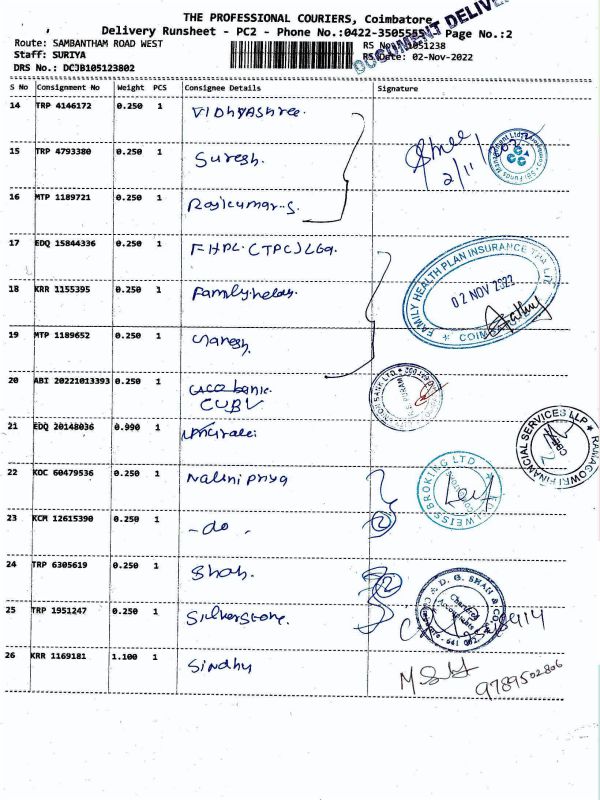 THE PROFESSIONAL COURIERS, Coimbatore
DOCUMENT DELIVER
Delivery Runsheet - PC2 - Phone No.:0422-3505555 Page No.:2
Route: SAMBANTHAM ROAD WEST
RS No 1051238
Staff: SURIYA
RS Date: 02-Nov-2022
DRS No.: DCJB105123802
S No Consignment No Weight PCS Consignee Details Signature
14 TRP 4146172 0.250 1 Vidhyashree.
15 TRP 4793380 0.250 1 Suresh.
Shree 2/11/2022
16 MTP 1189721 0.250 1 Rajkumar-S.
17 EDQ 15844336 0.250 1 FHPL. CTPC)
FAMILY HEALTH PLAN INSURANCE TPA LTD
18 KRR 1155395 0.250 1
02 NOV 2022
19 MTP 1189652 0.250 1
COIM
20 ABI 20221013393 0.250 1 bank.
CUBL
21 EDQ 20148036 0.990 1
RAMAGOWRI FINANCIAL SERVICES LLP
22 KOC 60479536 0.250 1 Nalini priya
EDELWEISS BROKING LTD
23 KCM 12615390 0.250 1 - do.
2
24 TRP 6305619 0.250 1 Shah.
2
D. G. SHAH & CO.
Chartered Accountants
25 TRP 1951247 0.250 1 Silverstone.
26 KRR 1169181 1.100 1 Sindhu
9789502806